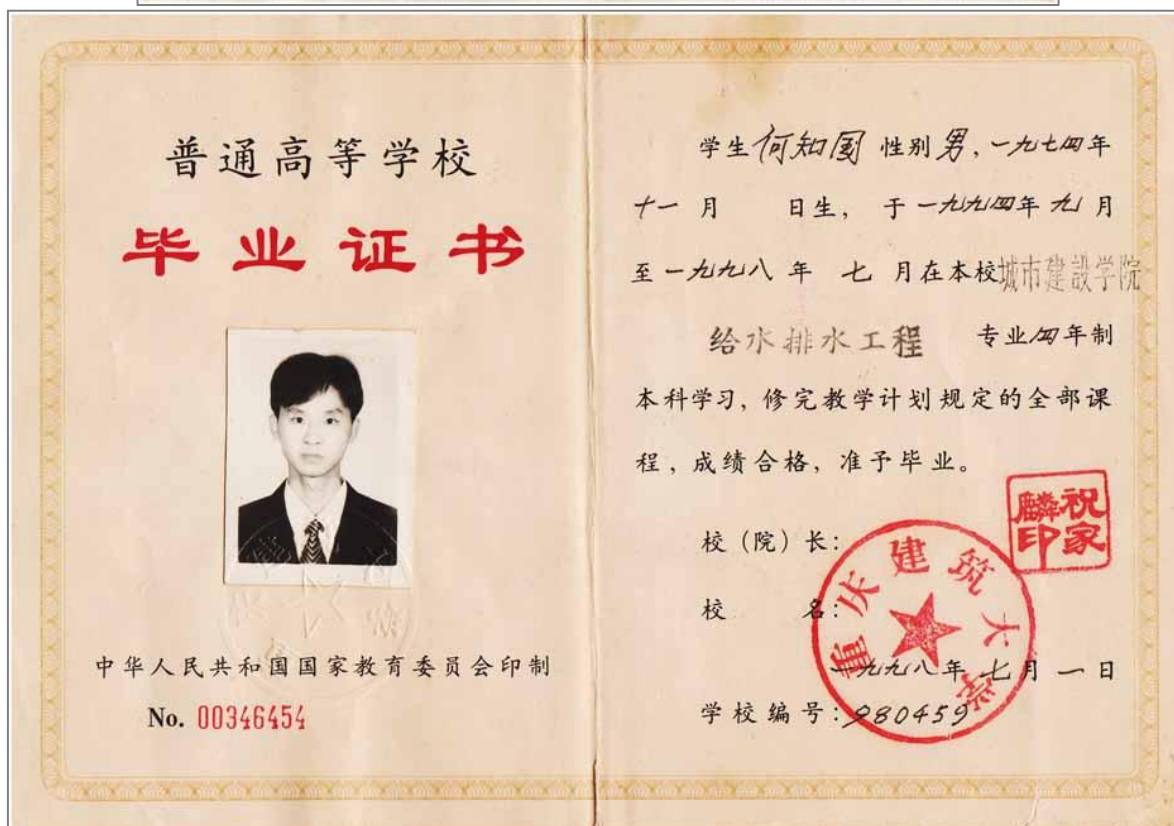 普通高等学校
毕业证书
中华人民共和国国家教育委员会印制
No. 00346454
学生何知国 性别男，一九七四年
十一月 日生，于一九九四年九月
至一九九八年 七 月在本校城市建設学院
给水排水工程 专业四年制
本科学习，修完教学计划规定的全部课
程，成绩合格，准予毕业。
校（院）长：
祝家麟印
校 名：
重庆建筑大学
一九九八年七月一日
学校编号：980459